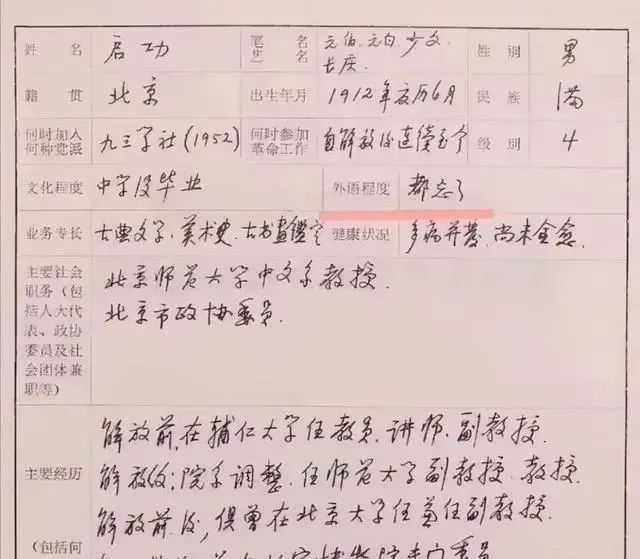 姓名 启功 笔名 元伯、元白、少文、 性别 男
长庆
籍贯 北京 出生年月 1912年农历6月 民族 满
何时加入 九三学社(1952) 何时参加 自解放后连续至今 级别 4
何种党派 革命工作
文化程度 中学没毕业 外语程度 都忘了
业务专长 古典文学、美术史、古书画鑑定 健康状况 多病并发,尚未全愈.
主要社会 北京师范大学中文系教授.
职务(包 北京市政协委员.
括人大代
表、政协
委员及社
会团体兼
职等)
解放前,在辅仁大学任教员、讲师、副教授.
主要经历 解放后;院系调整,任师范大学副教授、教授.
解放前后,俱曾在北京大学任兼任副教授.
(包括何